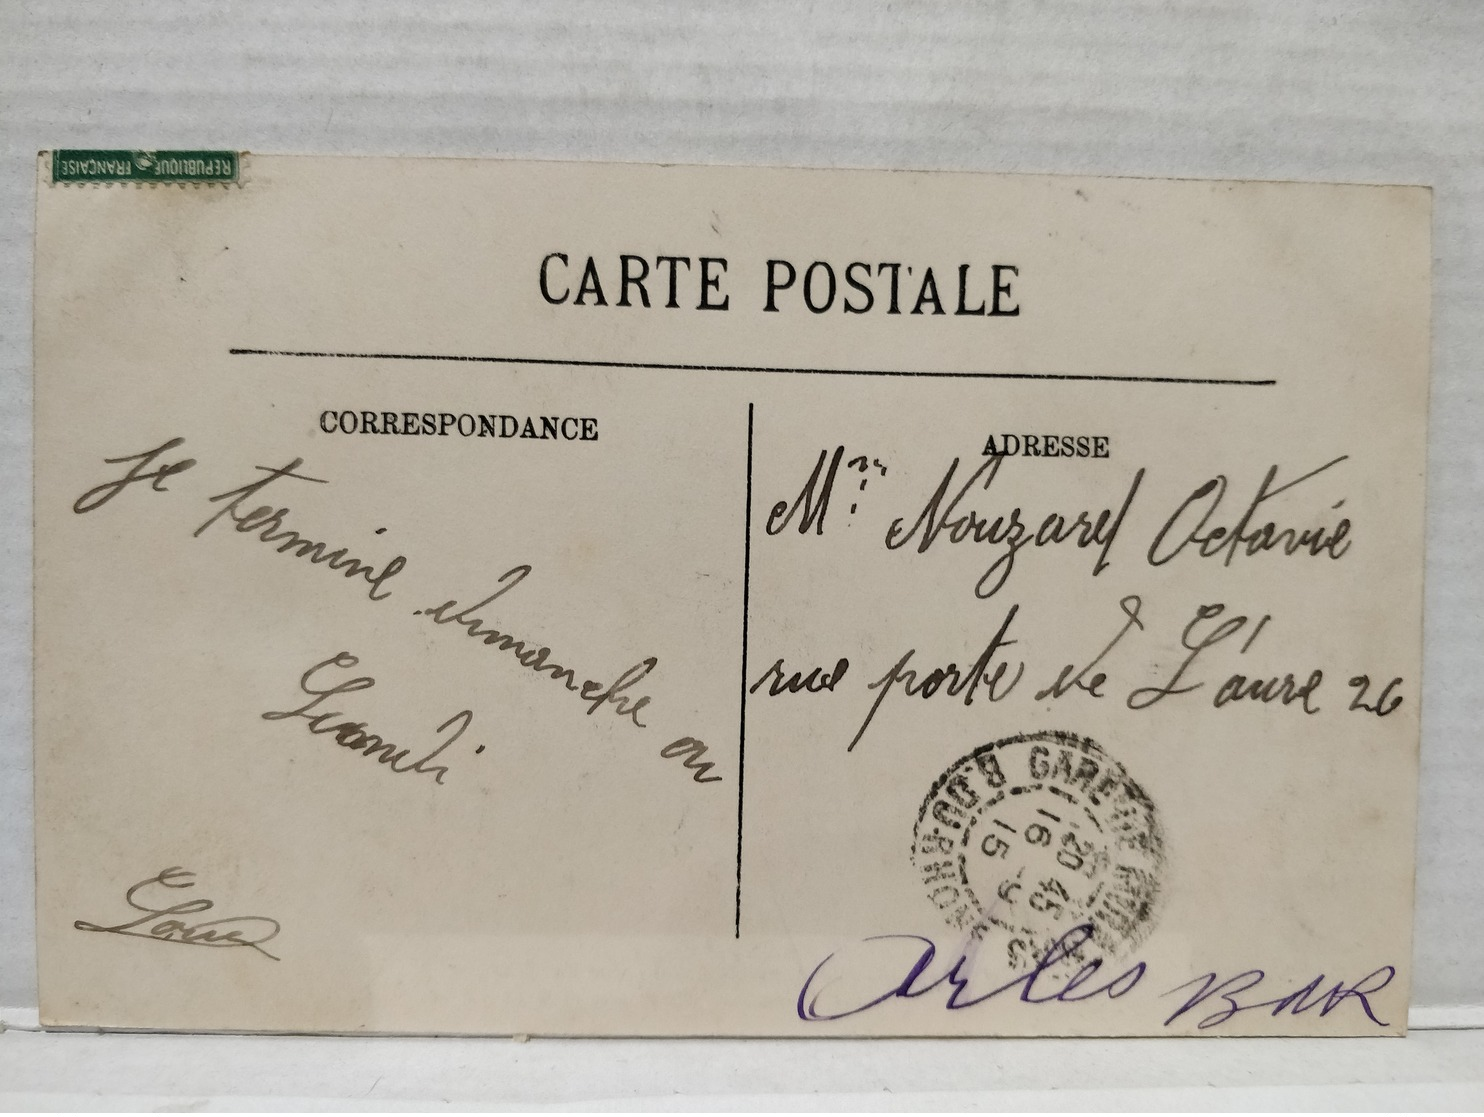 REPUBLIQUE FRANÇAISE
CARTE POSTALE
CORRESPONDANCE
Je termine dimanche ou
Lundi
Louis
ADRESSE
Octavie
rue porte de L'aure 26
GARE DE
B. DU RHONE
20 45
16 9
15
Arles BDR